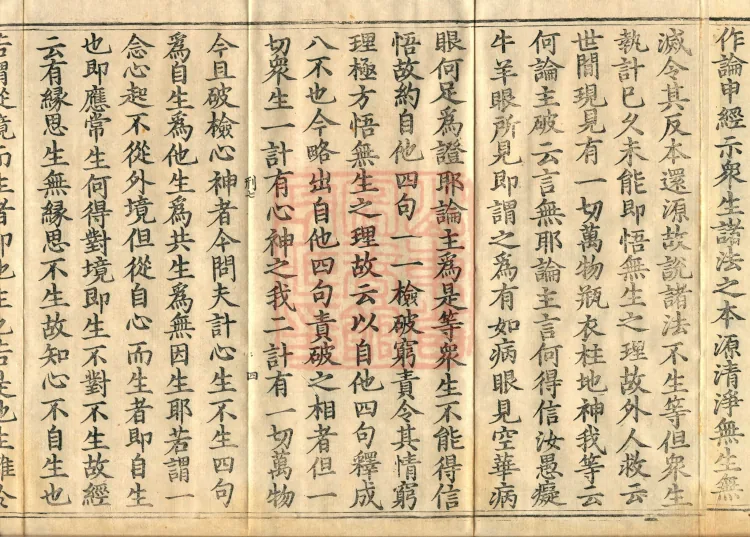 作論申經示衆生諸法之本源清淨無生無
滅令其反本還源故說諸法不生等但衆生
執計已久未能即悟無生之理故外人救云
世間現見有一切萬物瓶衣柱地神我等云
何論主破云言無耶論主言何得信汝愚癡
牛羊眼所見即謂之爲有如病眼見空華病
眼何足爲證耶論主爲是等衆生不能得信
悟故約自他四句一一檢破窮責令其情窮
理極方悟無生之理故云以自他四句釋成
八不也今略出自他四句責破之相者但一
切衆生一計有心神之我二計有一切萬物
刑七 四
今且破檢心神者今問夫計心生不生四句
爲自生爲他生爲共生爲無因生耶若謂一
念心起不從外境但從自心而生者即自生
也即應常生何得對境即生不對不生故經
云有緣思生無緣思不生故知心不自生也
若謂從境而生者即他生也若是他生雖令